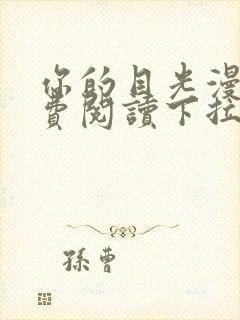 你的目光漫
費閱讀下拉
孫曹